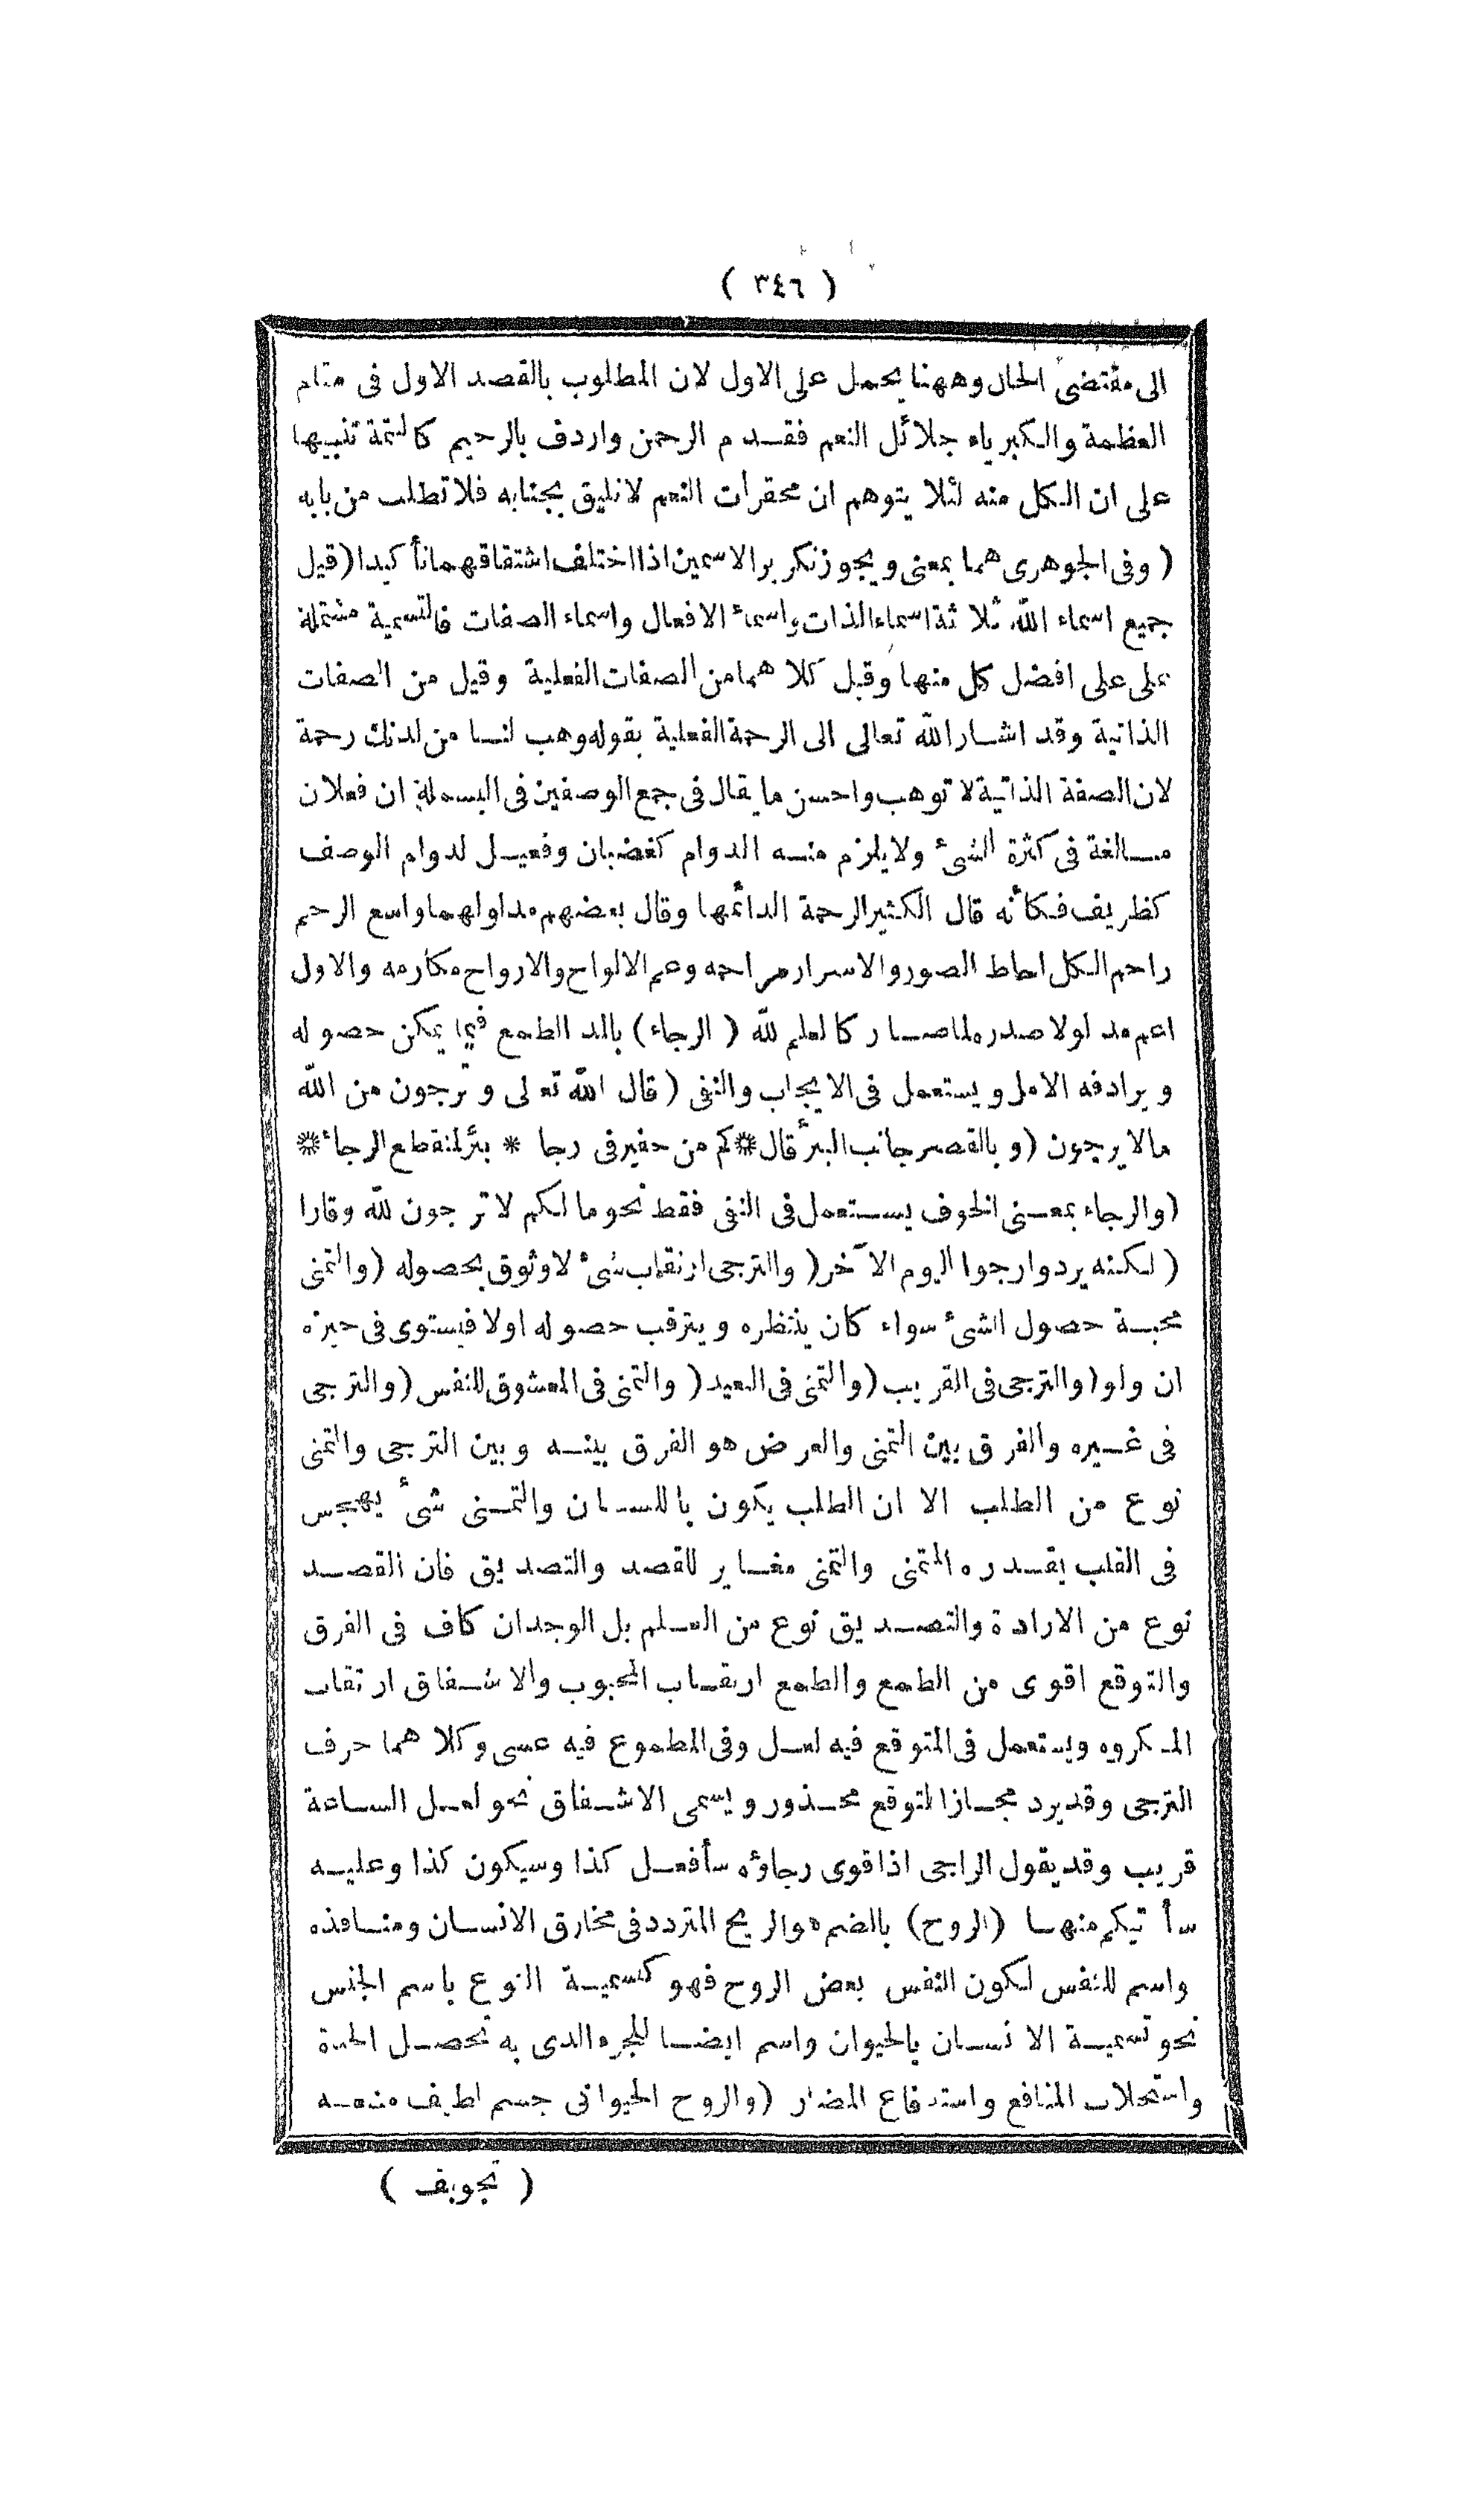 ( ٣٤٦ )
الى مقتضى الحال وههنا يحمل على الاول لان المطلوب بالقصد الاول فى مقام
العظمة والكبرياء جلائل النعم فقدم الرحمن واردف بالرحيم كالتتمة تنبيها
على ان الكل منه لئلا يتوهم ان محقرات النعم لا تليق بجنابه فلا تطلب من بابه
( وفى الجوهرى هما بمعنى ويجوز تكرير الاسمين اذا اختلف اشتقاقهما تأكيدا ( قيل
جميع اسماء الله ثلاثة اسماء الذات واسماء الافعال واسماء الصفات فالتسمية مشتملة
على على افضل كل منها وقيل كلاهما من الصفات الفعلية وقيل من الصفات
الذاتية وقد اشار الله تعالى الى الرحمة الفعلية بقوله وهب لنا من لدنك رحمة
لان الصفة الذاتية لا توهب واحسن ما يقال فى جمع الوصفين فى البسملة ان فعلان
مبالغة فى كثرة الشىء ولا يلزم منه الدوام كغضبان وفعيل لدوام الوصف
كظريف فكأنه قال الكثير الرحمة الدائمها وقال بعضهم مدلولهما واسع الرحم
راحم الكل احاط الصور والاسرار مراحمه وعم الالواح والارواح مكارمه والاول
اعم مدلولا صدره لما صار كالعلم لله ( الرجاء ) بالمد الطمع فيما يمكن حصوله
ويرادفه الامل ويستعمل فى الايجاب والنفى ( قال الله تعالى وترجون من الله
مالا يرجون ( وبالقصر جانب البئر قال * كم من حفير فى رجا * بئر لمنقطع الرجاء *
( والرجاء بمعنى الخوف يستعمل فى النفى فقط نحو مالكم لا ترجون لله وقارا
( لكنه يرد وارجوا اليوم الآخر ( والترجى ارتقاب شىء لا وثوق بحصوله ( والتمنى
محبة حصول الشىء سواء كان ينتظره ويترقب حصوله اولا فيستوى فى حيزه
ان ولو ( والترجى فى القريب ( والتمنى فى البعيد ( والتمنى فى المعشوق للنفس ( والترجى
فى غيره والفرق بين التمنى والعرض هو الفرق بينه وبين الترجى والتمنى
نوع من الطلب الا ان الطلب يكون باللسان والتمنى شىء يهجس
فى القلب يقدره المتمنى والتمنى مغاير للقصد والتصديق فان القصد
نوع من الارادة والتصديق نوع من العلم بل الوجدان كاف فى الفرق
والتوقع اقوى من الطمع والطمع ارتقاب المحبوب والاشفاق ارتقاب
المكروه ويستعمل فى المتوقع فيه لعل وفى المطموع فيه عسى وكلاهما حرف
الترجى وقد يرد مجازا لتوقع محذور ويسمى الاشفاق نحو لعل الساعة
قريب وقد يقول الراجى اذا قوى رجاؤه سأفعل كذا وسيكون كذا وعليه
سأتيكم منها ( الروح ) بالضم هو الريح المتردد فى مخارق الانسان ومنافذه
واسم للنفس لكون النفس بعض الروح فهو كتسمية النوع باسم الجنس
نحو تسمية الانسان بالحيوان واسم ايضا للجزء الذى به تحصل الحياة
واستجلاب المنافع واستدفاع المضار ( والروح الحيوانى جسم لطيف منبعه
( تجويف )